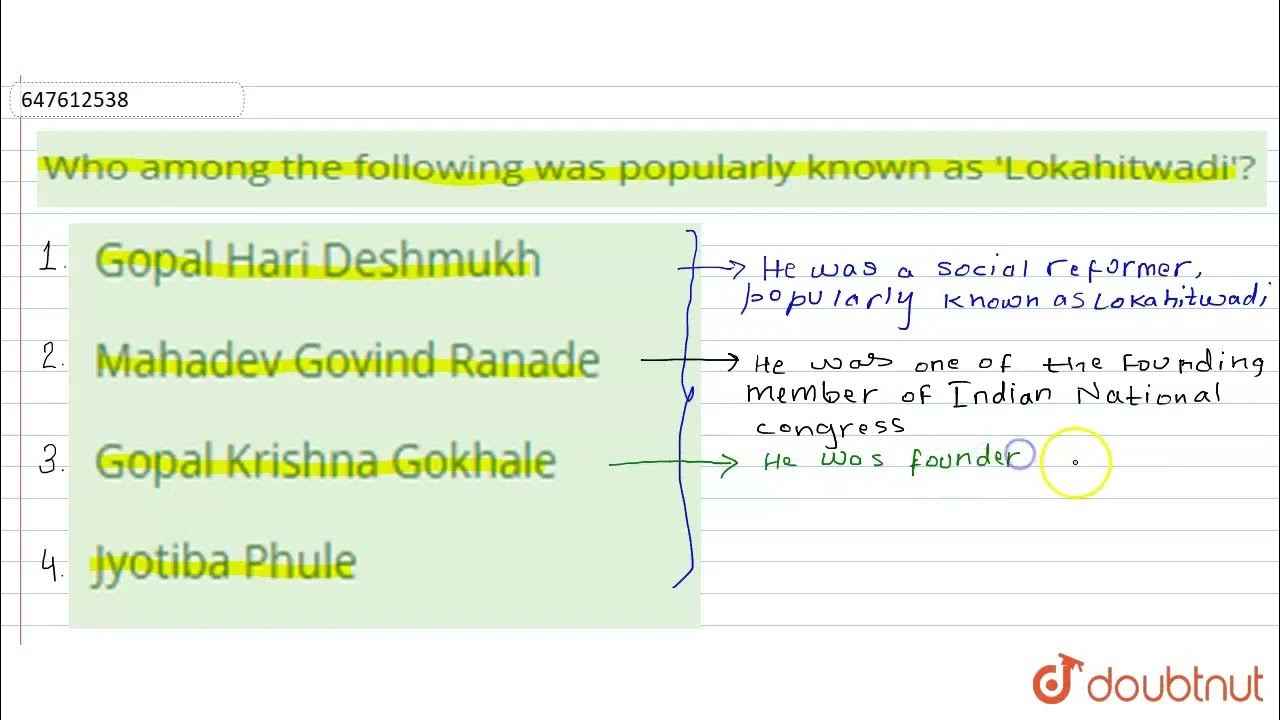 647612538
Who among the following was popularly known as 'Lokahitwadi'?
1. Gopal Hari Deshmukh
He was a social reformer,
popularly known as Lokahitwadi
2. Mahadev Govind Ranade
He was one of the founding
member of Indian National
congress
3. Gopal Krishna Gokhale
He was founder
4. Jyotiba Phule
doubtnut